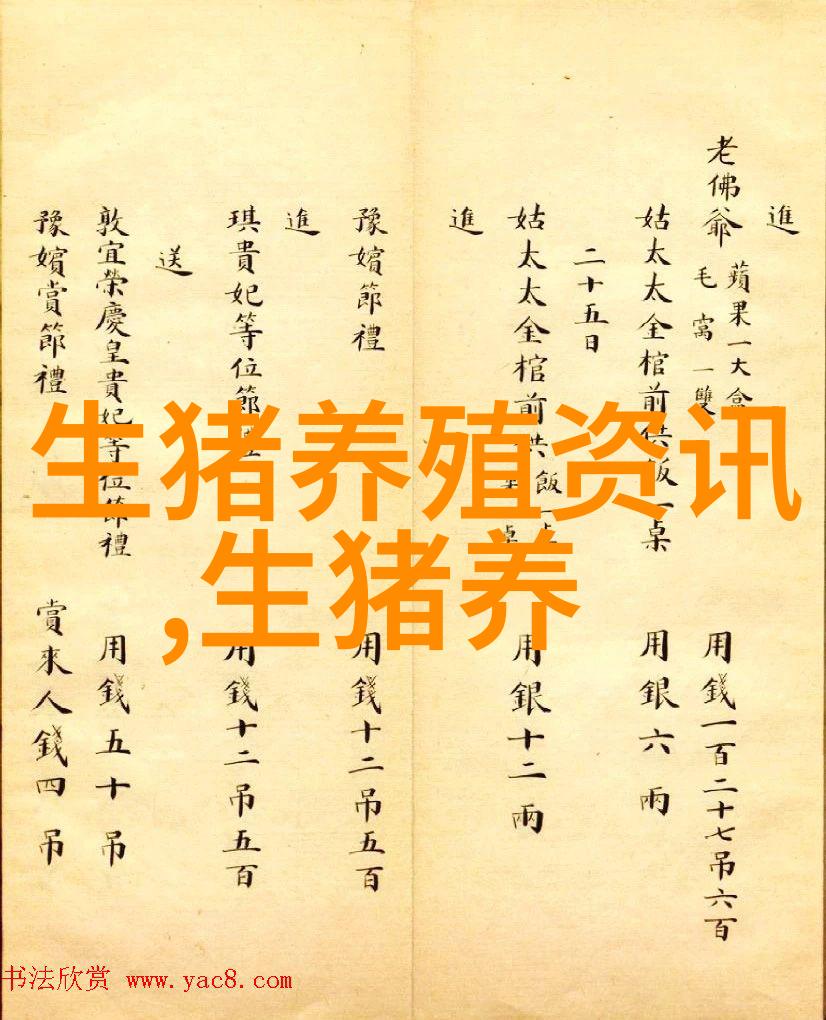 進
老佛爺 蘋果一大盒
毛窩一雙
用錢一百二十七吊六百
姑太太金棺前供飯一桌 用銀六兩
二十五日
姑太太金棺前供飯一桌 用銀十二兩
進
豫嬪節禮 用錢十二吊五百
進
琪貴妃等位節禮 用錢十二吊五百
送
敦宜榮慶皇貴妃等位節禮 用錢五十吊
豫嬪賞節禮 賞來人錢四吊
生猪养殖资讯
,生猪养
书法欣赏 www.yac8.com